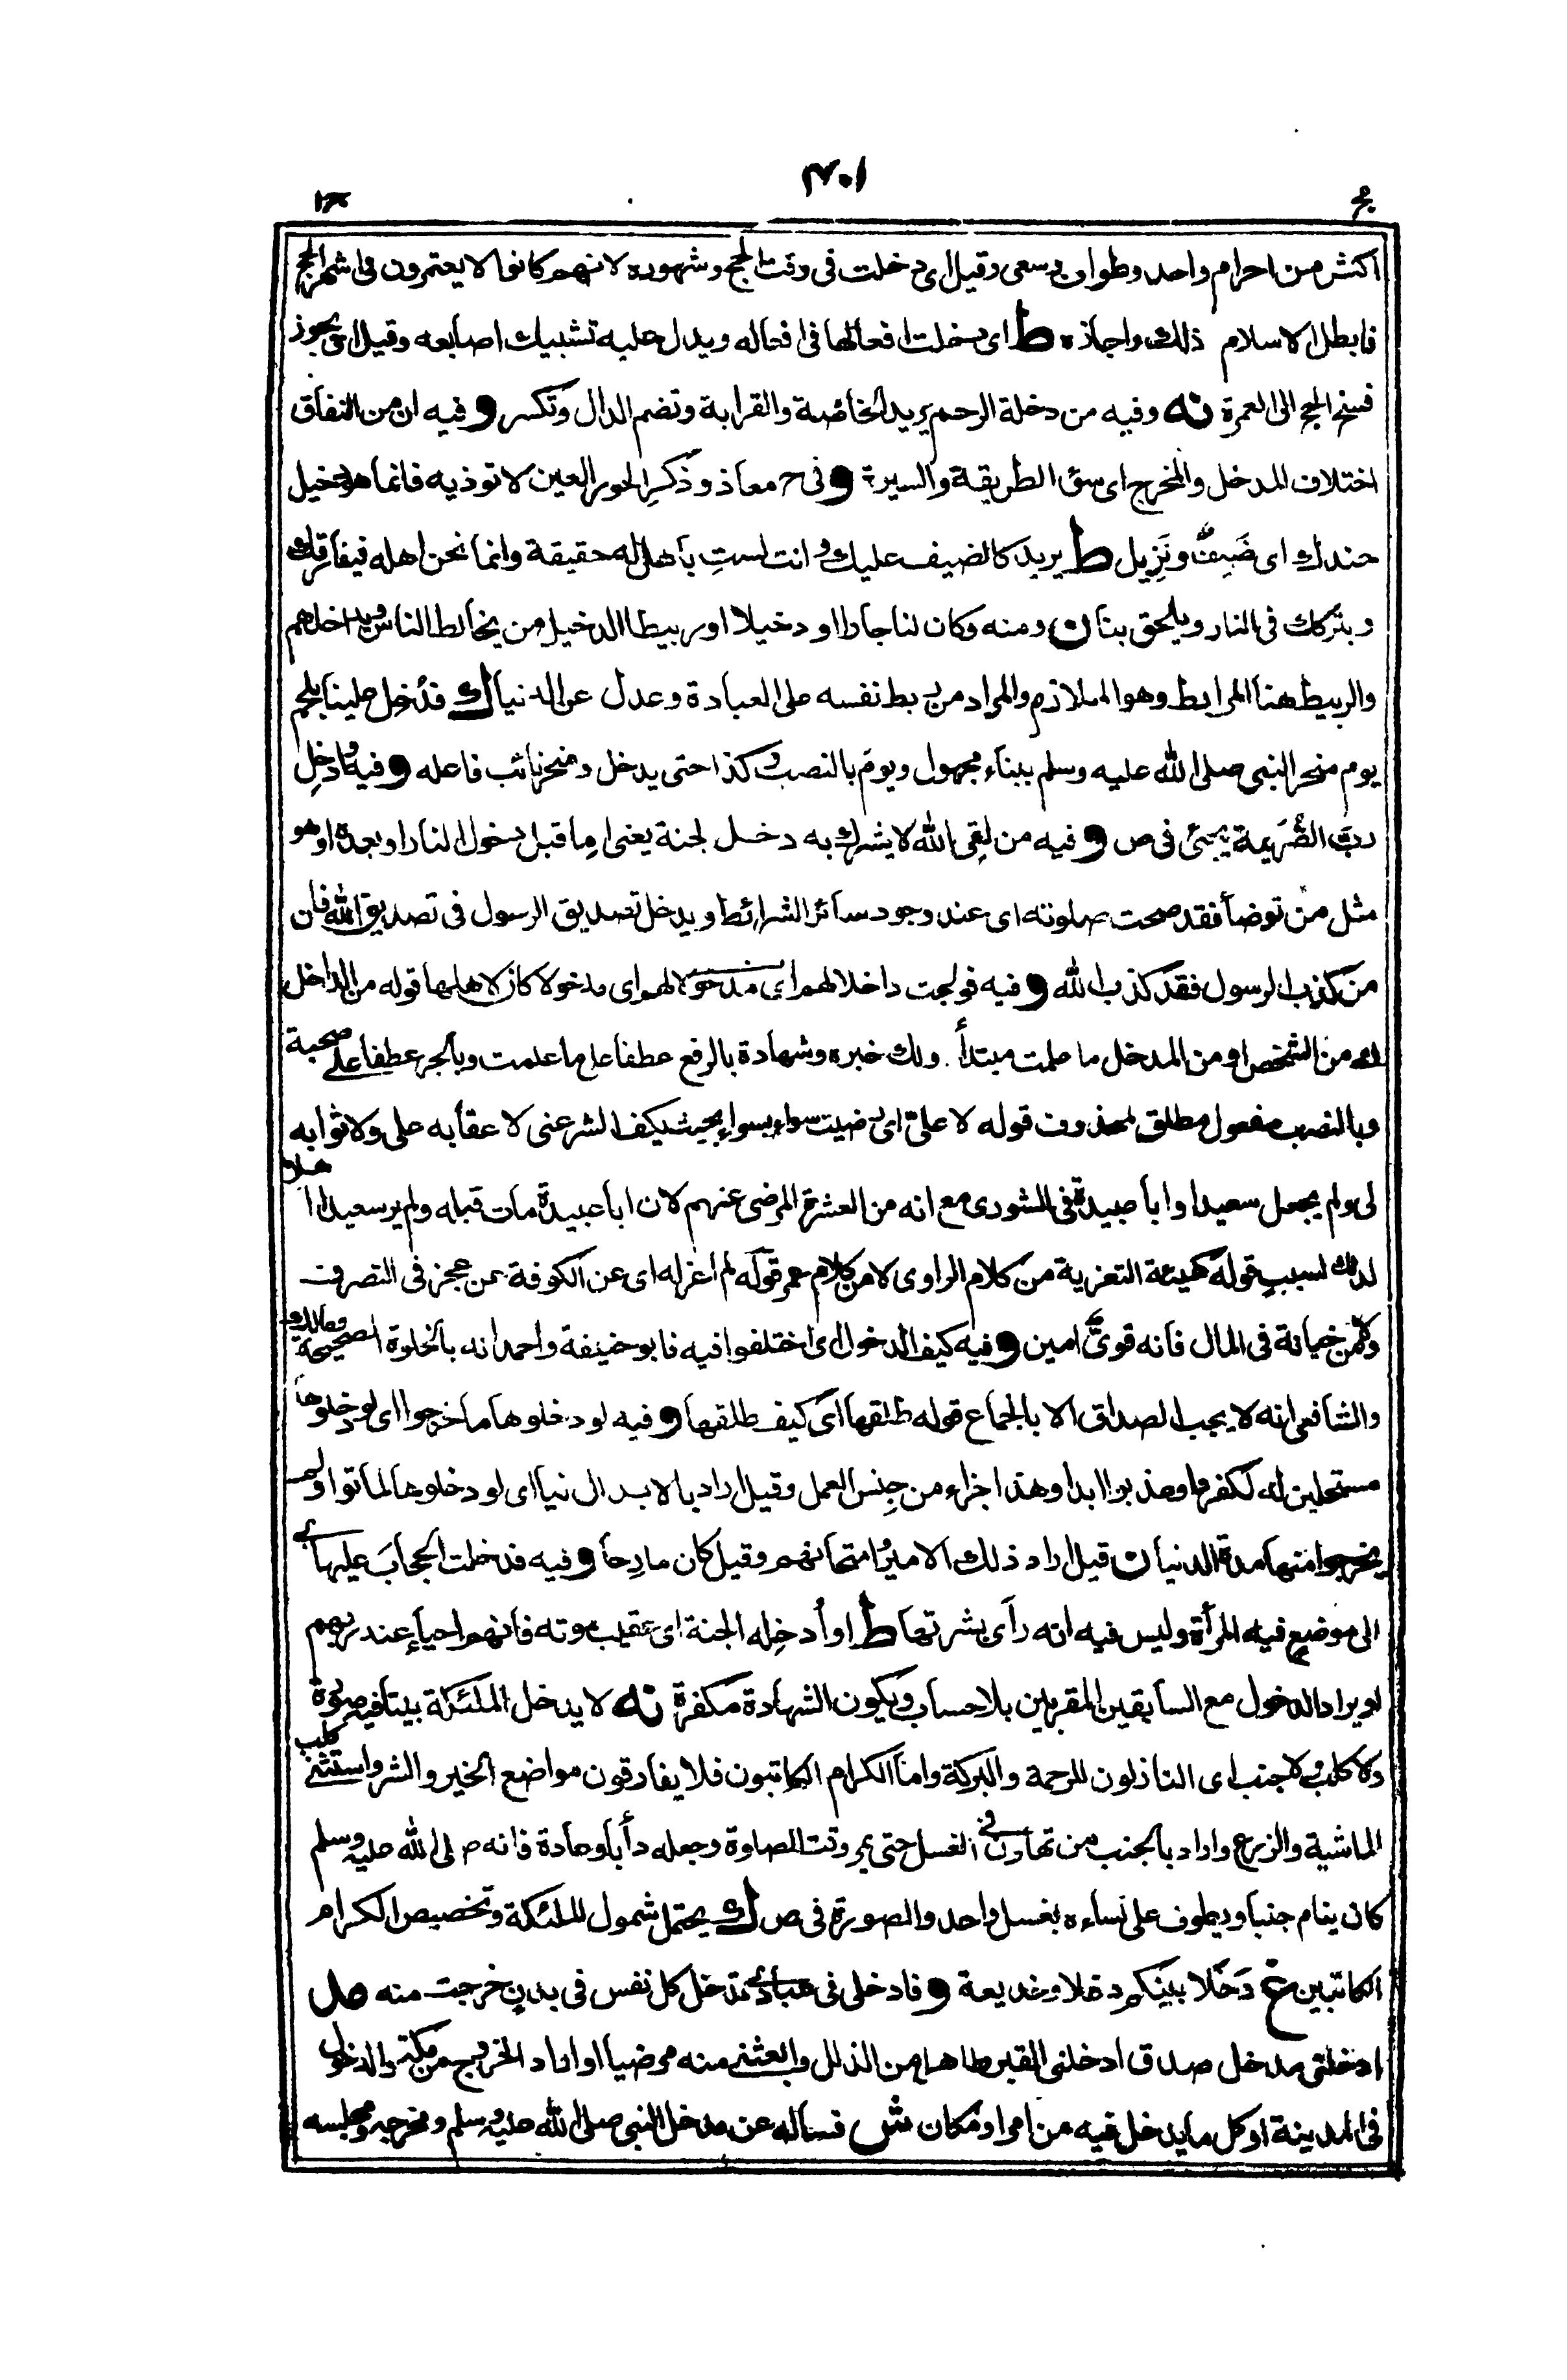 ٤٠١
اكثر من احرام واحد وطواف وسعى وقيل اى دخلت فى وقت الحج وشهوره لانهم كانوا لا يعتمرون فى اشهر الحج
فابطل الاسلام ذلك واجازه ط اى دخلت افعالها فى افعاله ويدل عليه تشبيك اصابعه وقيل اى يجوز
فسخ الحج الى العمرة نه وفيه من دخلة الرحم يريد الخاصة والقرابة وتضم الدال وتكسر و فيه ان من النفاق
اختلاف المدخل والمخرج اى سئ الطريقة والسيرة و فى ح معاذ وذكر الحور العين لا توذيه فانما هو دخيل
عندك اى ضَيف ونَزِيل ط يريد كالضيف عليك وانت لستِ باهل له حقيقة وانما نحن اهله فيفارقك
ويتركك فى النار ويلحق بنا ن ومنه وكان لنا جارا او دخيلا او ربيطا الدخيل من يخالط الناس ويداخلهم
والربيط هنا المرابط وهو الملازم والمراد من ربط نفسه على العبادة وعدل عن الدنيا ك فدُخل علينا بلحم
يوم منحر النبى صلى الله عليه وسلم ببناء مجهول ويومَ بالنصب وكذا حتى يدخل ومنحر نائب فاعله و فيه وادخِل
ربَّ الصُّرَيمة يجئ فى ص و فيه من لقِى الله لا يشرك به دخل لجنة يعنى اما قبل دخول النار او بعده او هو
مثل من توضأ فقد صحت صلوته اى عند وجود سائر الشرائط ويدخل تصديق الرسول فى تصديق الله فان
من كذب الرسول فقد كذب الله و فيه فولجت داخلا لهم اى مدخولا لهم اى مدخولا كان لاهلها قوله من الداخل
اى من الشخص او من المدخل ما علمت مبتدأ ولك خبره وشهادة بالرفع عطفا على ما علمت وبالجر عطفا على صحبة
وبالنصب مفعول مطلق لمحذوف قوله لا علىّ اى رضيت سواء بسواء بحيث يكف الشر عنى لا عقابه على ولا ثوابه
لى ولم يجعل سعيدا وابا عبيدة فى الشورى مع انه من العشرة المرضى عنهم لان ابا عبيدة مات قبله ولم ير سعيدا اهلا
لذلك لسبب قوله كهيئة التعزية من كلام الراوى لا من كلام عمر قوله لم اعزله اى عن الكوفة عن عجز فى التصرف
ولا عن خيانة فى المال فانه قوىّ امين و فيه كيف الدخول اى اختلفوا فيه فابو حنيفة واحمد انه بالخلوة الصحيحة ومالك
والشافعى انه لا يجب الصداق الا بالجماع قوله طلقها اى كيف طلقها و فيه لو دخلوها ما خرجوا اى لو دخلوها
مستحلين له لكفروا وعذبوا ابدا وهذا جزاء من جِنس العمل وقيل اراد بالابد الدنيا اى لو دخلوها لماتوا ولم
يخرجوا منها مدة الدنيا ن قيل اراد ذلك الامير امتحانهم وقيل كان مازحا و فيه فدخلت الحجابَ عليها اى
الى موضع فيه المرأة وليس فيه انه رأى بشرتها ط او أُدخِله الجنة اى عقيب موته فانهم احياء عند ربهم
او يراد الدخول مع السابقين المقربين بلا حساب ويكون الشهادة مكفرة نه لا يدخل الملئكة بيتا فيه صورة
ولا كلب ولا جنب اى النازلون للرحمة والبركة واما الكرام الكاتبون فلا يفارقون مواضع الخير والشر واستثنى كلب
الماشية والزرع واراد بالجنب من تهاون فى الغسل حتى يمر وقت الصلوة وجعله دأبا وعادة فانه صلى الله عليه وسلم
كان ينام جنبا ويطوف على نساءه بغسل واحد والصورة فى ص ك يحتمل شمول الملئكة وتخصيص الكرام
الكاتبين غ دَخَلا بينكم دغلا وخديعة و فادخلى فى عبادى تدخل كل نفس فى بدن خرجت منه صل
ادخلنى مدخل صدق ادخلنى القبر طاهرا من الذلل وابعثنى منه مرضيا او اراد الخروج من مكة والدخول
فى المدينة او كل ما يدخل فيه من امر او مكان ش فسأله عن مدخل النبى صلى الله عليه وسلم ومخرجه ومجلسه